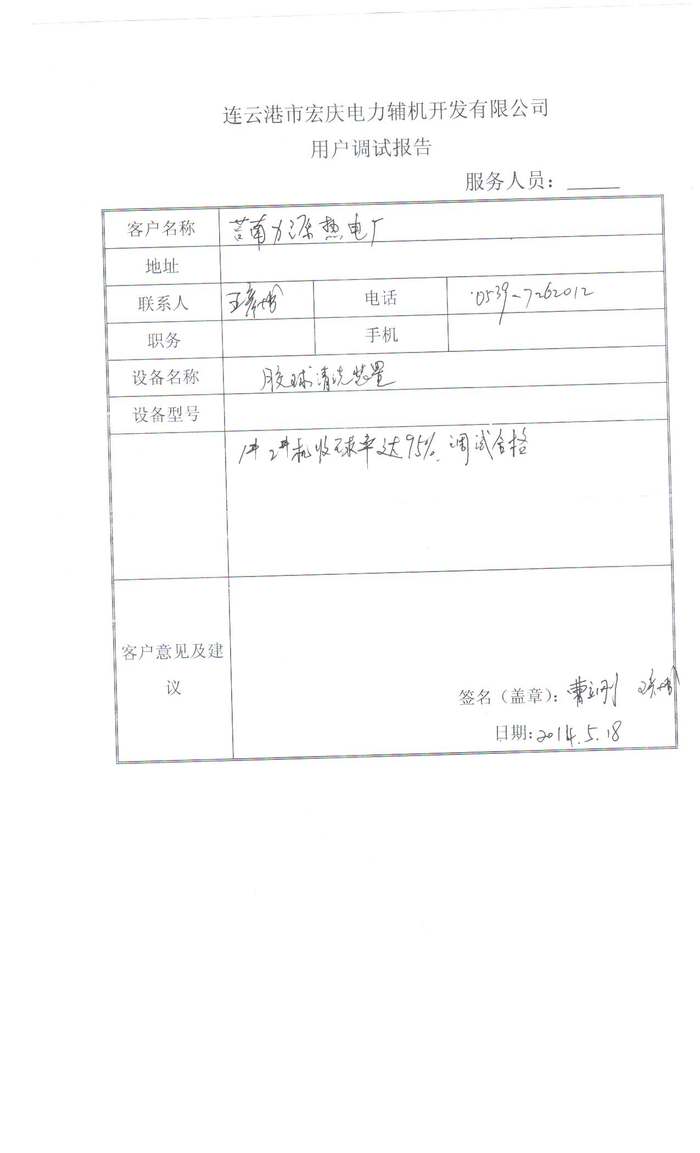 连云港市宏庆电力辅机开发有限公司
用户调试报告
服务人员：
客户名称 莒南力源热电厂
地址
联系人 电话 0539-7262012
职务 手机
设备名称 胶球清洗装置
设备型号
1# 2#机收球率达95% 调试合格
客户意见及建
议
签名（盖章）：曹立刚
日期：2014.5.18